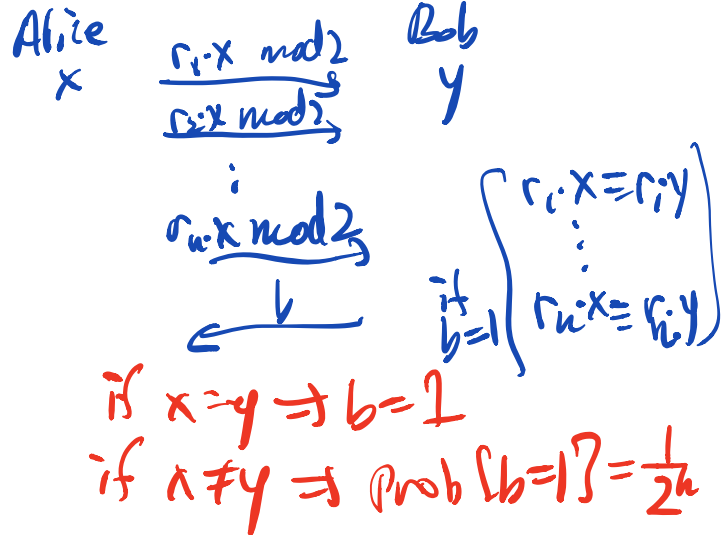 Alice
x
r₁·x mod 2
r₂·x mod 2
⋮
rₙ·x mod 2
b
Bob
y
if b=1
r₁·x ≡ r₁·y
⋮
rₙ·x ≡ rₙ·y
if x=y ⇒ b=1
if x≠y ⇒ Prob[b=1] = 1/2ⁿ